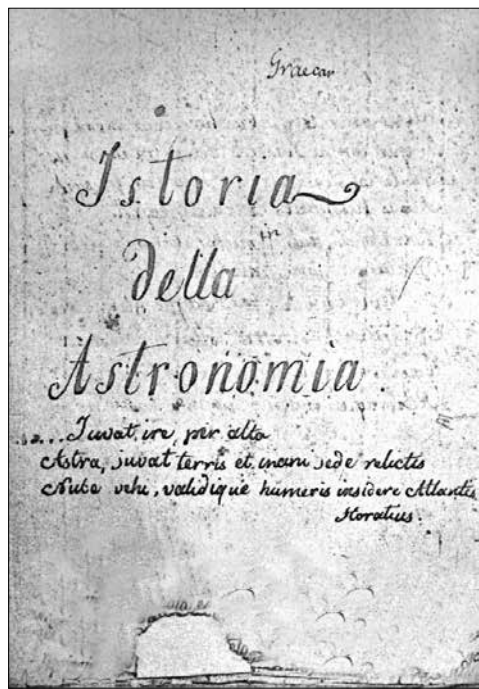 Graecar
Istoria
in
della
Astronomia.
... Iuvat ire per alta
Astra, juvat terris et inani sede relictis
Nube vehi, validique humeris insidere Atlantis
Horatius.